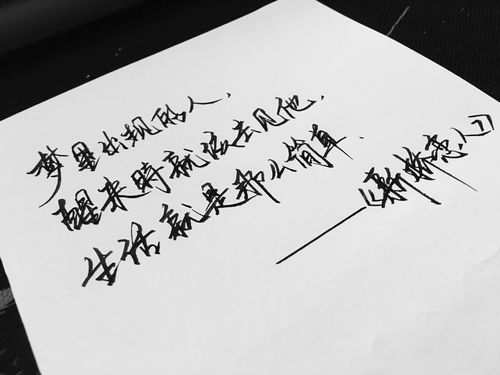 梦里出现的人，
醒来時就该去见他，
生活就是那么简单.
——《新桥恋人》